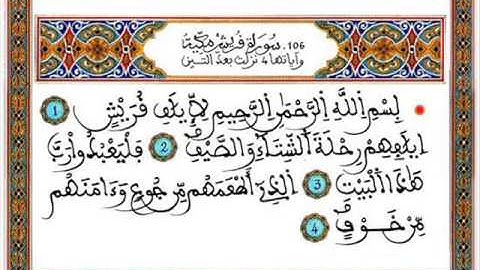 106. سورة قريش مكية
وآياتها 4 نزلت بعد التين
بِسْمِ اللَّهِ الرَّحْمَٰنِ الرَّحِيمِ لِإِيلَٰفِ قُرَيْشٍ 1
إِۦلَٰفِهِمْ رِحْلَةَ الشِّتَآءِ وَالصَّيْفِ 2 فَلْيَعْبُدُوا رَبَّ
هَٰذَا الْبَيْتِ 3 الَّذِي أَطْعَمَهُم مِّن جُوعٍ وَءَامَنَهُم
مِّنْ خَوْفٍ 4